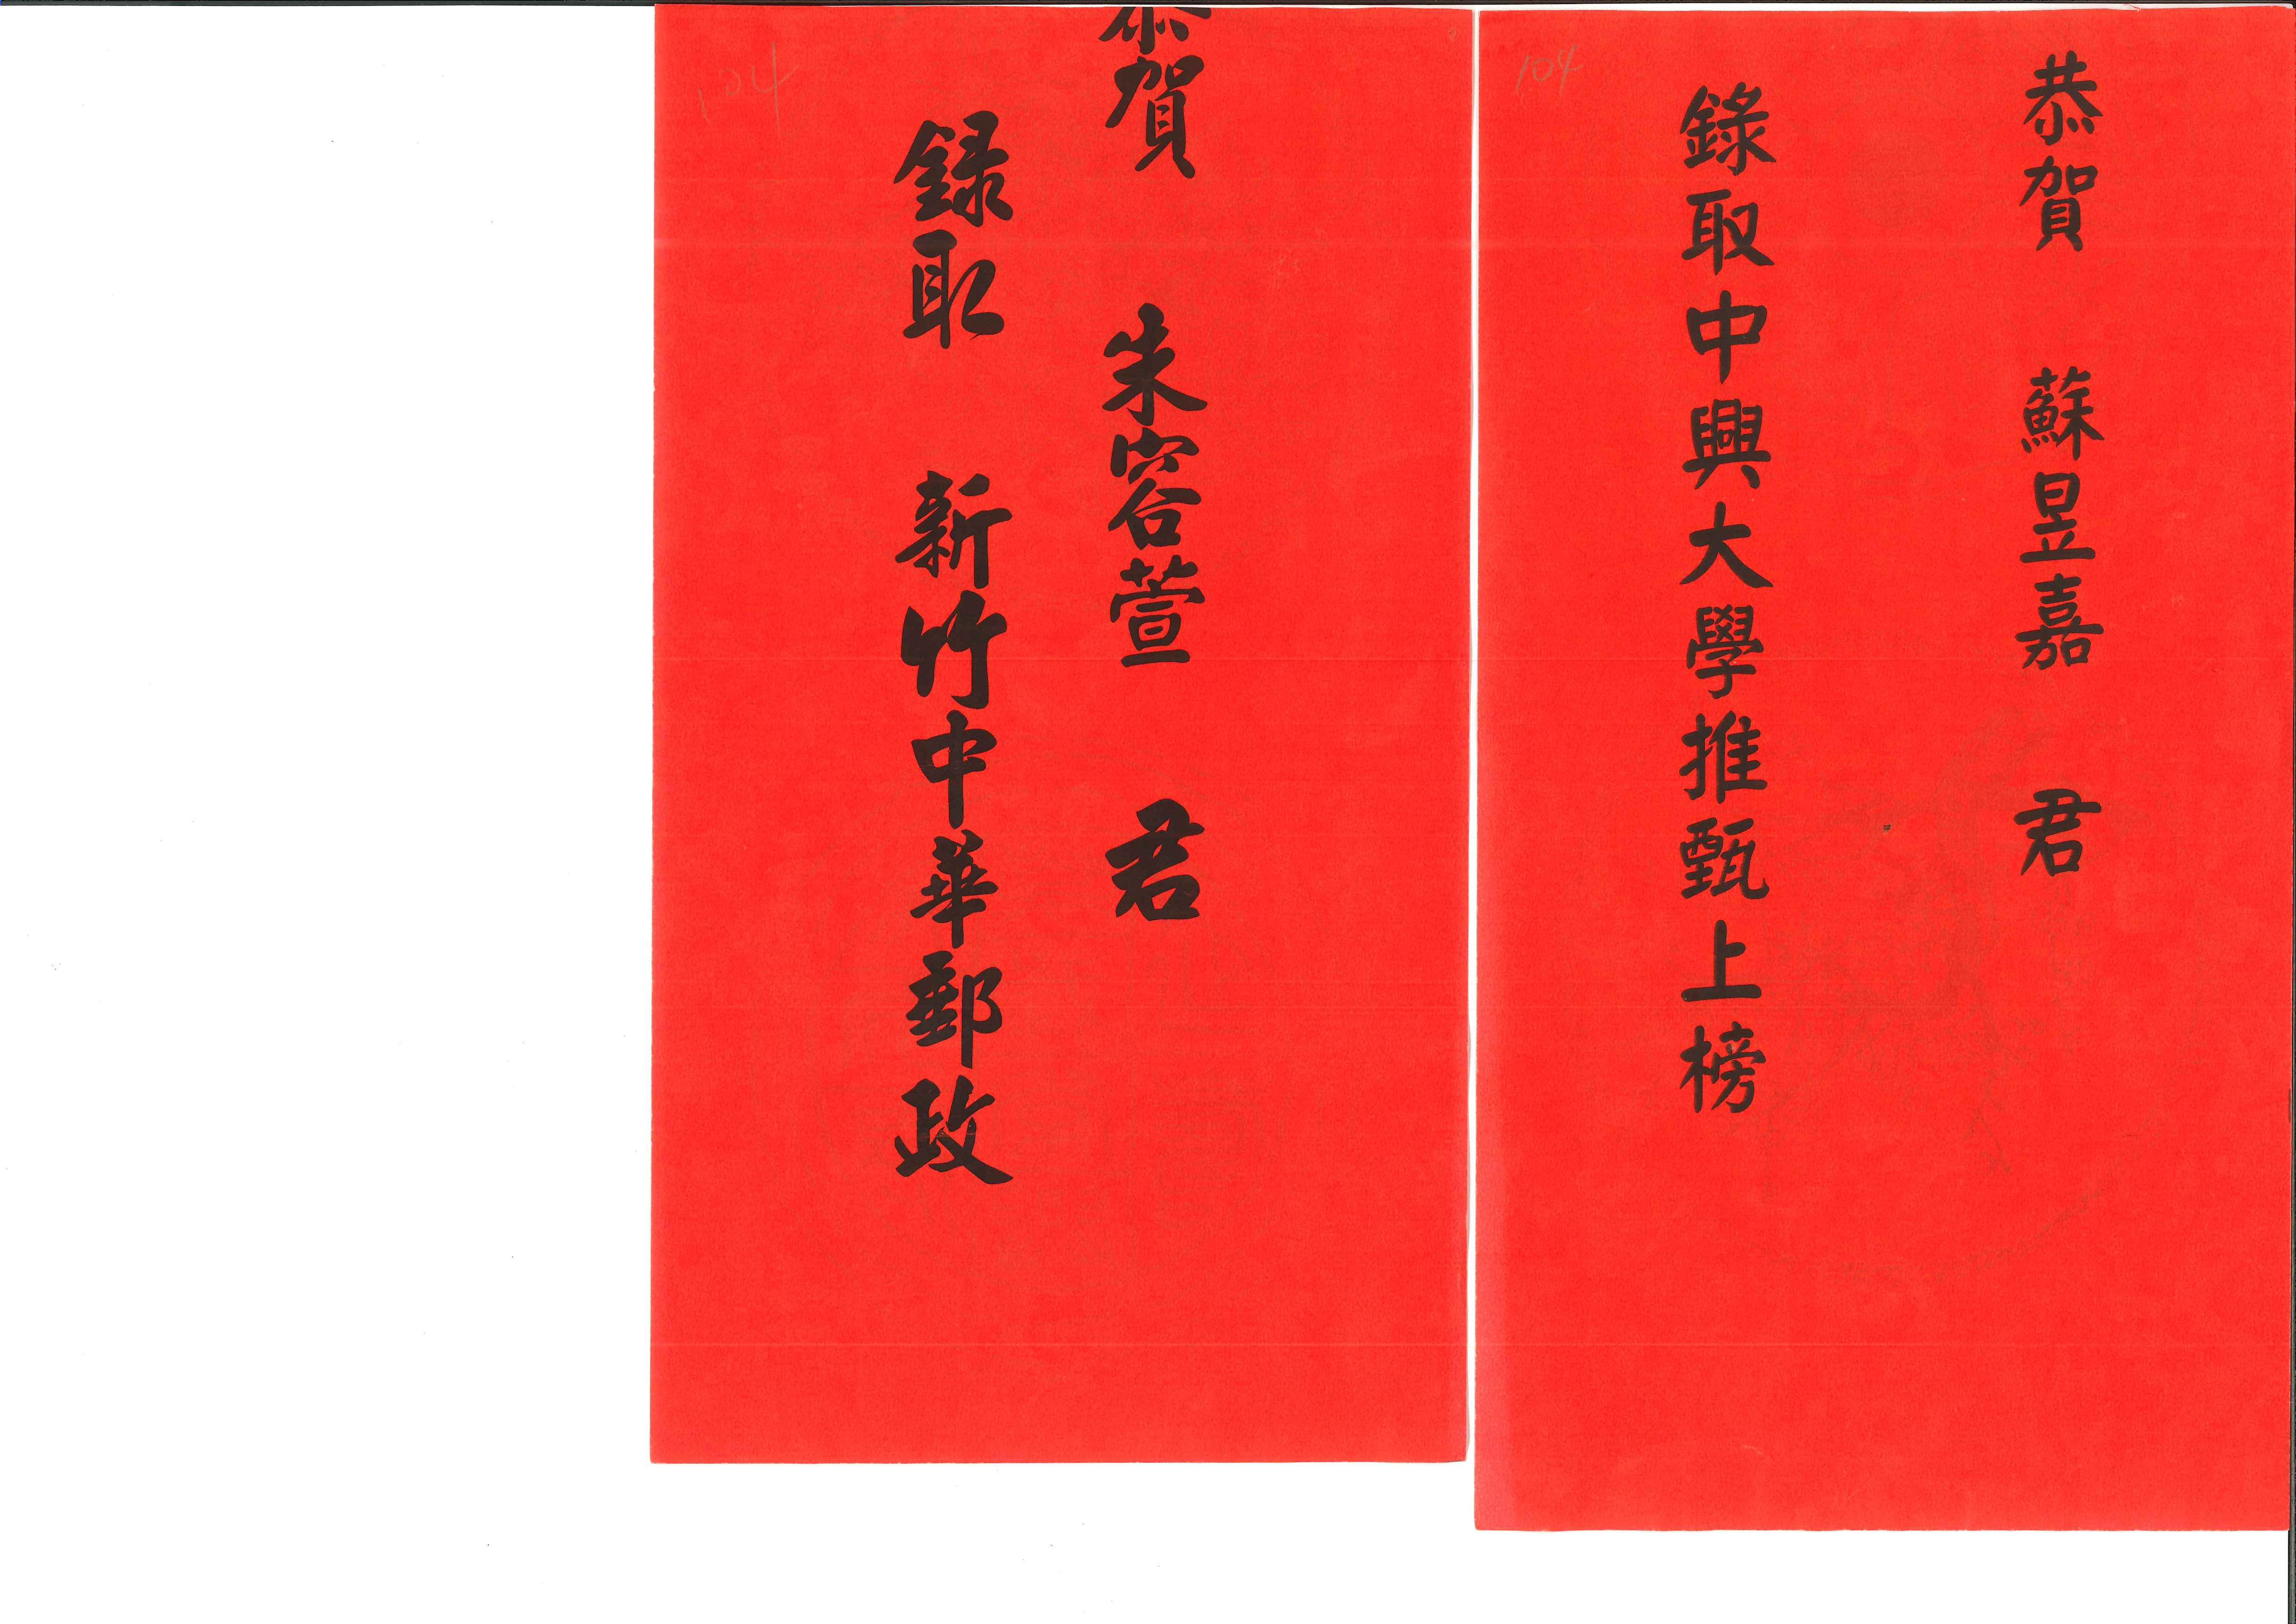 恭賀 蘇昱嘉 君
錄取中興大學推甄上榜
104
恭賀 朱容萱 君
録取 新竹中華郵政
104